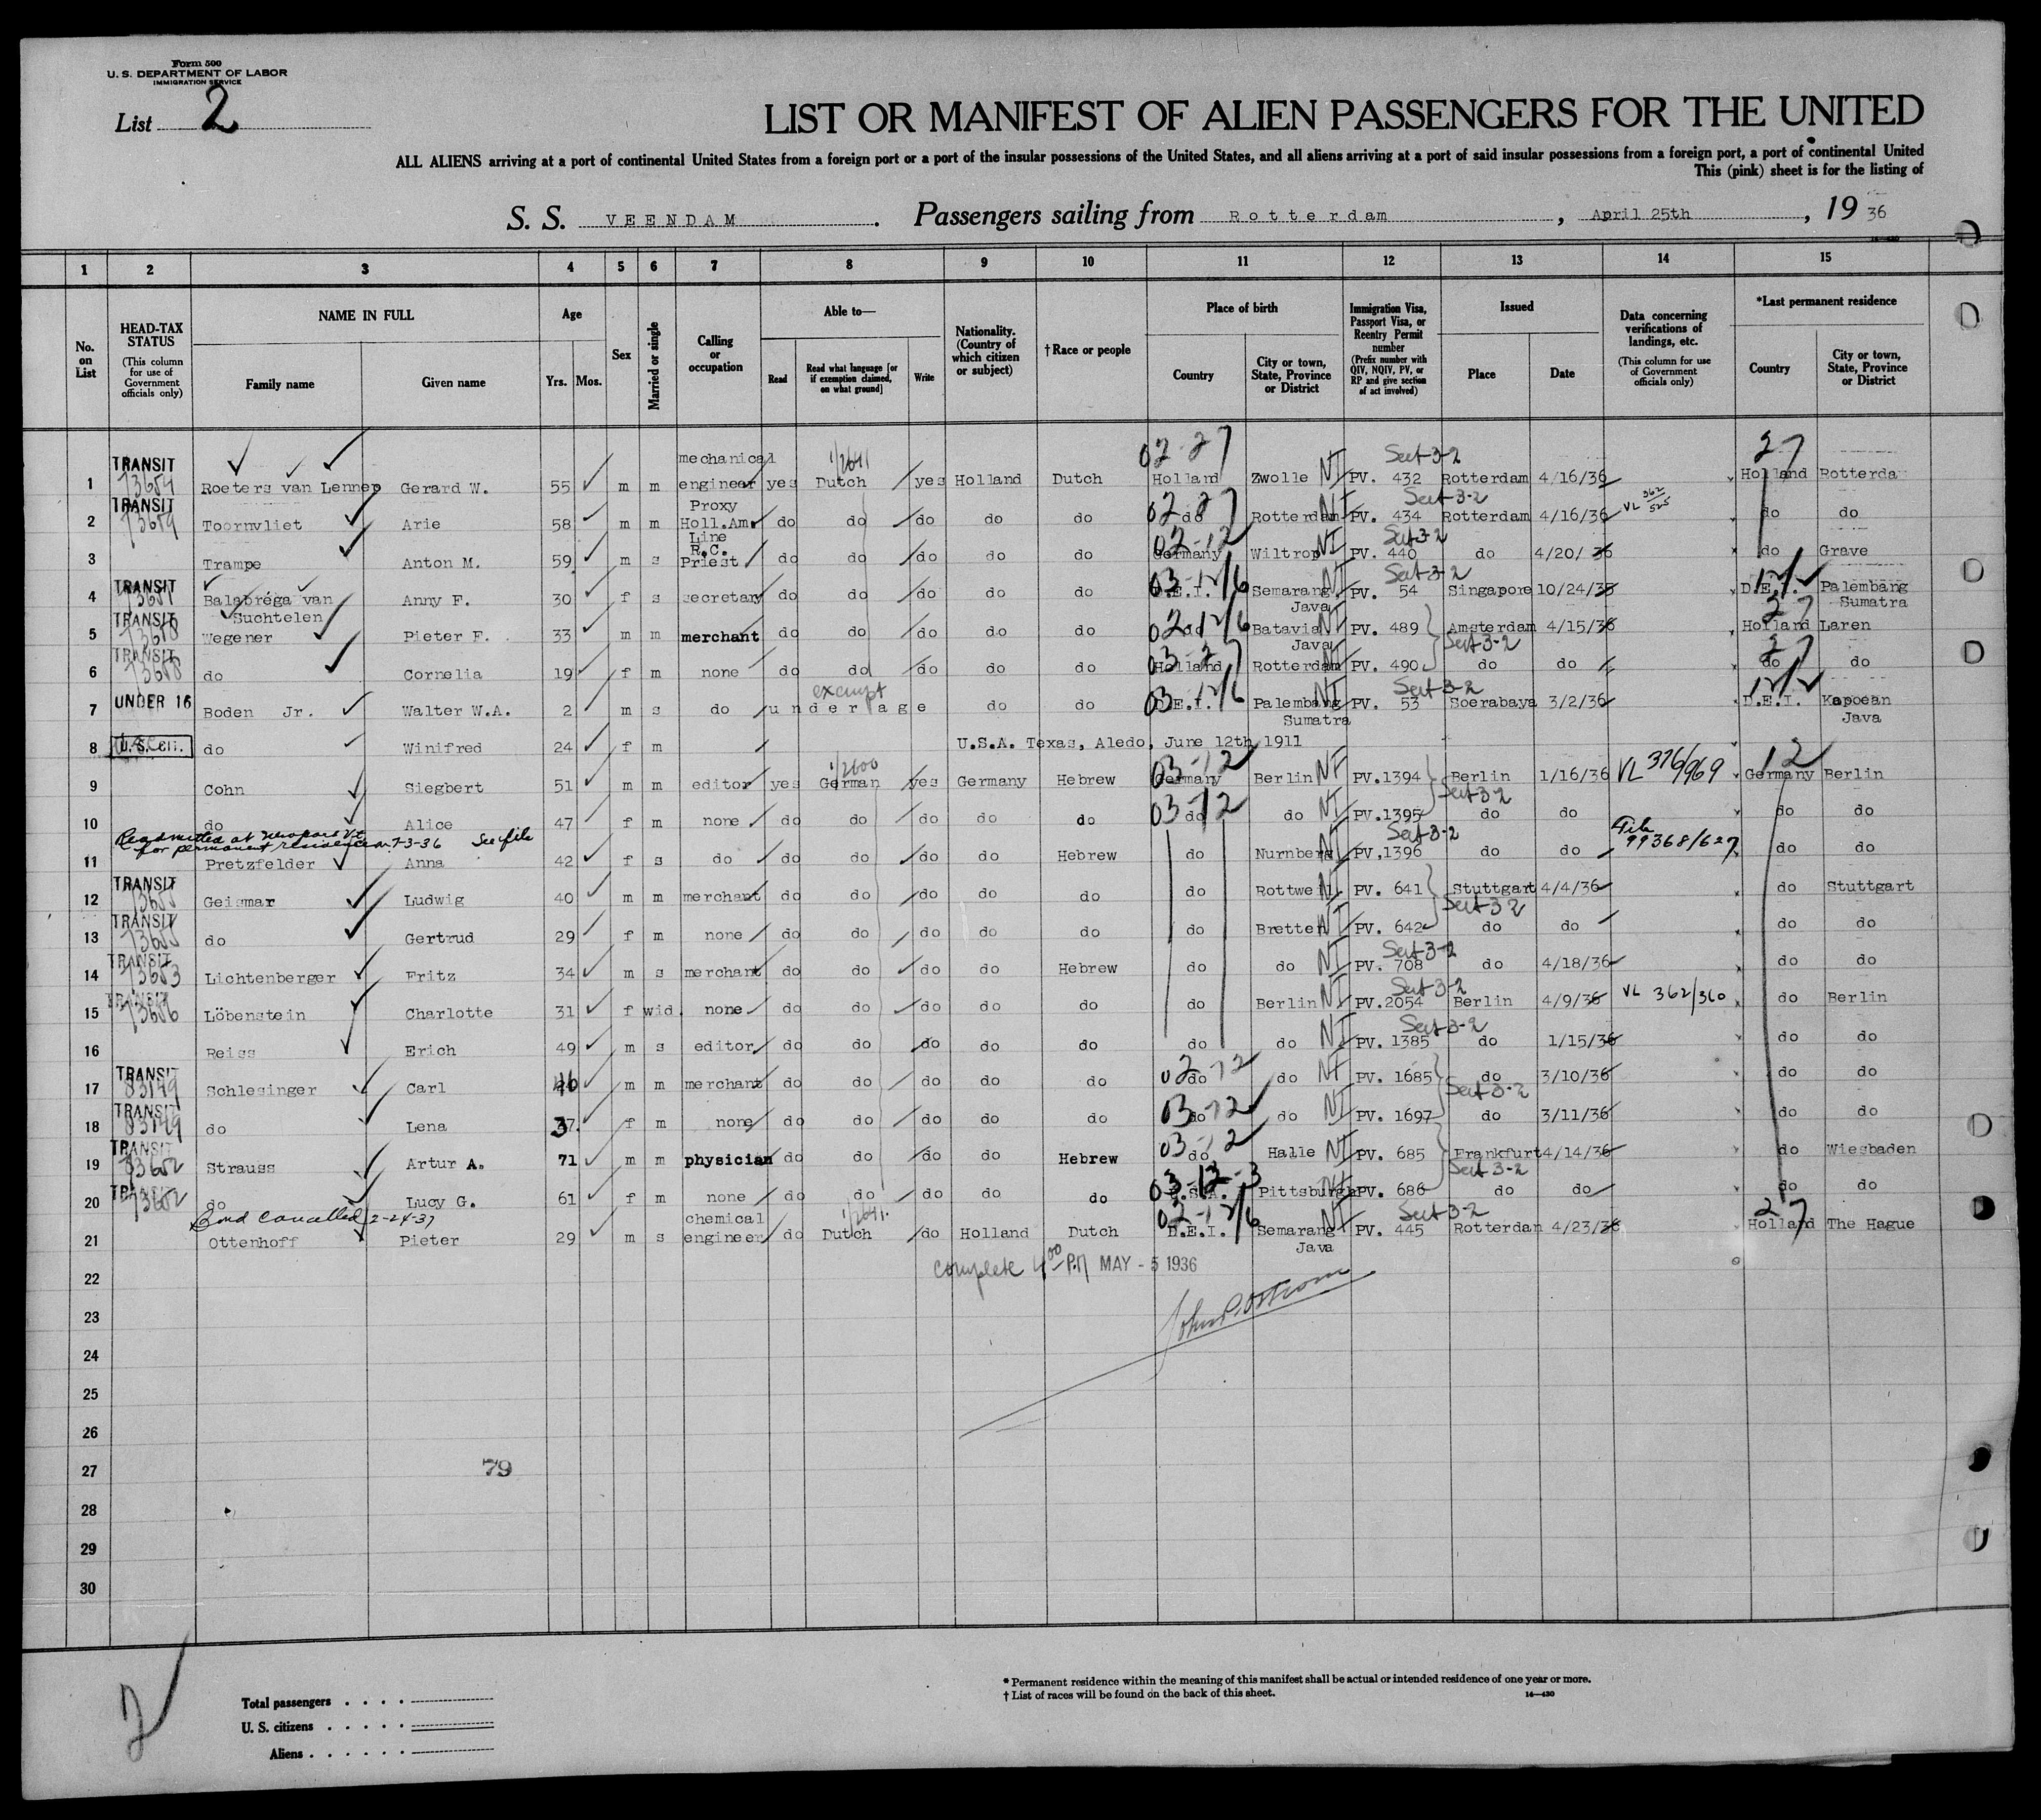 Form 500
U. S. DEPARTMENT OF LABOR
IMMIGRATION SERVICE
List 2
LIST OR MANIFEST OF ALIEN PASSENGERS FOR THE UNITED
ALL ALIENS arriving at a port of continental United States from a foreign port or a port of the insular possessions of the United States, and all aliens arriving at a port of said insular possessions from a foreign port, a port of continental United
This (pink) sheet is for the listing of
S. S. VEENDAM. Passengers sailing from Rotterdam, April 25th, 19 36
1 2 3 4 5 6 7 8 9 10 11 12 13 14 15
No. on List
HEAD-TAX STATUS
(This column for use of Government officials only)
NAME IN FULL
Family name Given name
Age
Yrs. Mos.
Sex
Married or single
Calling or occupation
Able to—
Read
Read what language [or if exemption claimed, on what ground]
Write
Nationality. (Country of which citizen or subject)
†Race or people
Place of birth
Country
City or town, State, Province or District
Immigration Visa, Passport Visa, or Reentry Permit number
(Prefix number with QIV, NQIV, PV, or RP and give section of act involved)
Issued
Place Date
Data concerning verifications of landings, etc.
(This column for use of Government officials only)
*Last permanent residence
Country
City or town, State, Province or District
02-27 Sect 3-2 27
1 TRANSIT 73654 Roeters van Lennep Gerard W. 55 m m mechanical engineer yes Dutch yes Holland Dutch Holland Zwolle NI PV. 432 Rotterdam 4/16/36 Holland Rotterda
2 TRANSIT 73659 Toornvliet Arie 58 m m Proxy Holl.Am. Line do do do do do do Rotterdam NI PV. 434 Sect 3-2 Rotterdam 4/16/36 VL 362/525 do do
3 Trampe Anton M. 59 m s R.C. Priest do do do do do 02-12 Germany Wiltrop NI PV. 440 Sect 3-2 do 4/20/36 do Grave
4 TRANSIT 73651 Balabréga van Suchtelen Anny F. 30 f s secretary do do do do do D.E.I. Semarang Java NI PV. 54 Sect 3-2 Singapore 10/24/35 D.E.I. Palembang Sumatra
5 TRANSIT Wegener Pieter F. 33 m m merchant do do do do do do Batavia Java NI PV. 489 Amsterdam 4/15/36 Holland Laren
6 TRANSIT 73658 do Cornelia 19 f m none do do do do do Holland Rotterdam PV. 490 Sect 3-2 do do do do
7 UNDER 16 Boden Jr. Walter W.A. 2 m s do exempt under age do do D.E.I. Palembang Sumatra NI PV. 53 Sect 3-2 Soerabaya 3/2/36 D.E.I. Kapoean Java
8 U.S. CIT. do Winifred 24 f m U.S.A. Texas, Aledo, June 12th 1911
9 Cohn Siegbert 51 m m editor yes German yes Germany Hebrew 03-12 Germany Berlin NI PV.1394 Berlin 1/16/36 VL 376/969 12 Germany Berlin
10 do Alice 47 f m none do do do do do 03-12 do do NI PV.1395 Sect 3-2 do do do do
Readmitted at Newport Vt for permanent residence on 7-3-36 See file
11 Pretzfelder Anna 42 f s do do do do do Hebrew do Nurnberg NI PV.1396 Sect 3-2 do do File 99368/627 do do
12 TRANSIT 73655 Geismar Ludwig 40 m m merchant do do do do do do Rottweil PV. 641 Stuttgart 4/4/36 do Stuttgart
13 TRANSIT 73655 do Gertrud 29 f m none do do do do do do Bretten NI PV. 642 Sect 3-2 do do do do
14 TRANSIT 73653 Lichtenberger Fritz 34 m s merchant do do do do Hebrew do do NI PV. 708 Sect 3-2 do 4/18/36 do do
15 TRANSIT 73656 Löbenstein Charlotte 31 f wid. none do do do do do do Berlin NI PV.2054 Sect 3-2 Berlin 4/9/36 VL 362/360 do Berlin
16 Reiss Erich 49 m s editor do do do do do do do NI PV. 1385 Sect 3-2 do 1/15/36 do do
17 TRANSIT 83149 Schlesinger Carl m m merchant do do do do do 02-12 do do NI PV. 1685 do 3/10/36 do do
18 TRANSIT 83149 do Lena 37. f m none do do do do do 03-12 do do NI PV. 1697 Sect 3-2 do 3/11/36 do do
19 TRANSIT 73652 Strauss Artur A. 71 m m physician do do do do Hebrew 03-12 do Halle NI PV. 685 Frankfurt 4/14/36 do Wiesbaden
20 TRANSIT 73652 do Lucy G. 61 f m none do do do do do U.S.A. Pittsburgh PV. 686 Sect 3-2 do do do do
Bond Cancelled 2-24-37
21 Ottenhoff Pieter 29 m s chemical engineer do Dutch do Holland Dutch D.E.I. Semarang Java NI PV. 445 Sect 3-2 Rotterdam 4/23/36 27 Holland The Hague
22 complete 400 P.M MAY - 5 1936
23
24
25
26
27 79
28
29
30
2
Total passengers
U. S. citizens
Aliens
* Permanent residence within the meaning of this manifest shall be actual or intended residence of one year or more.
† List of races will be found on the back of this sheet. 14—430